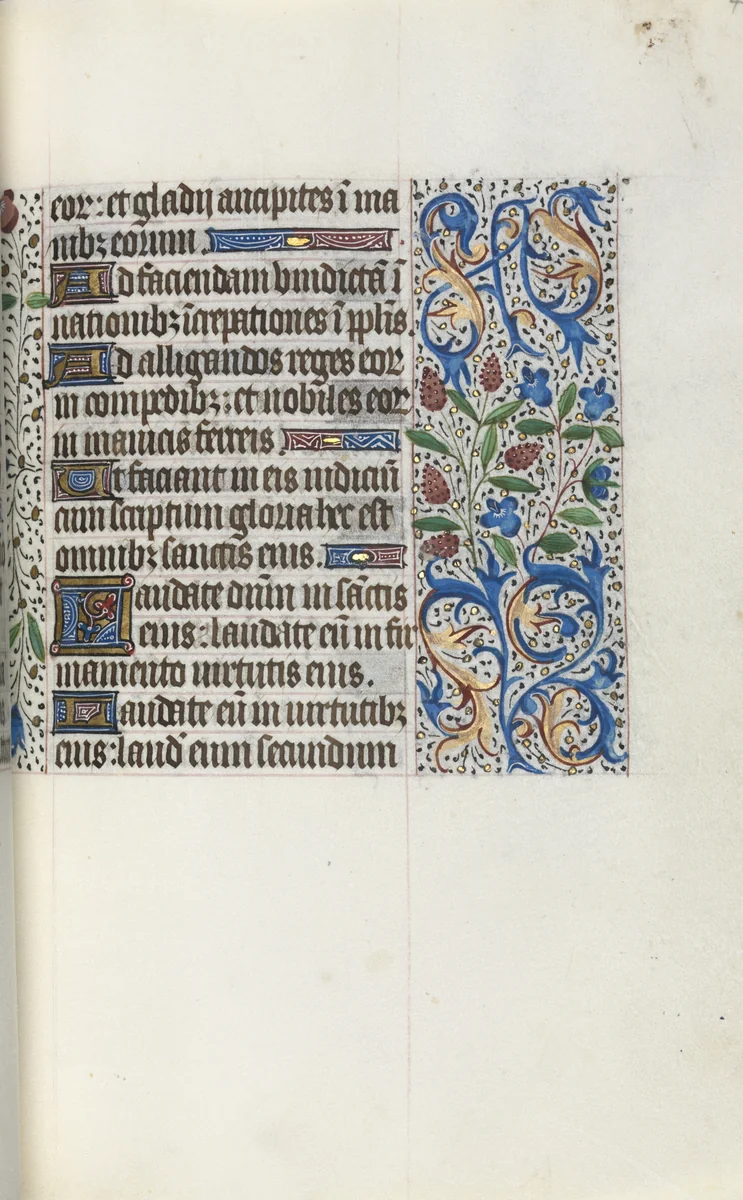 eor: et gladij ancipites ī ma
nibꝫ eorum.
Ad faciendam vindictā ī
nationibꝫ īcrepationes ī pplīs.
Ad alligandos reges eor
in compedibꝫ: et nobiles eor
in manicis ferreis.
Ut faciant in eis iudiciū
cum scriptum gloria hec est
omnibꝫ sanctis eius.
Laudate dūm in sāctis
eius: laudate eū in fir
mamento uirtutis eius.
Laudate eū in uirtutibꝫ
eius: laud eum secundum